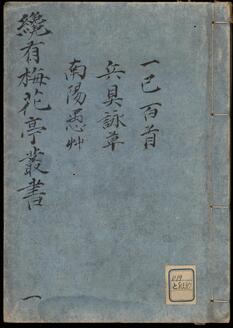 一已百首
兵具詠草
南陽愚艸
纔有梅花亭叢書
一